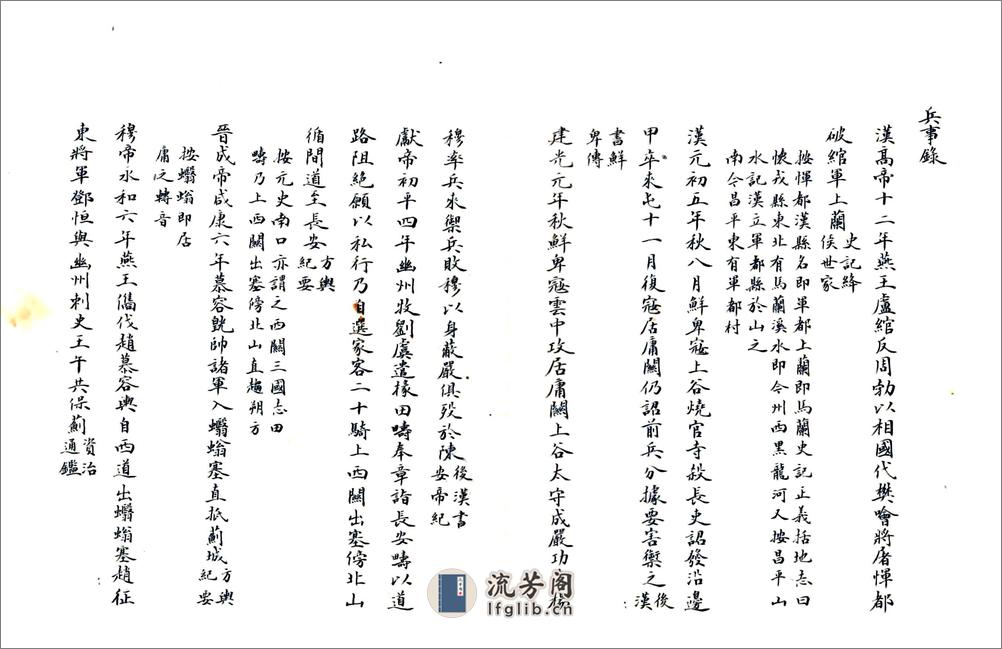 兵事錄
漢高帝十二年燕王盧綰反周勃以相國代樊噲將屠惲都
破綰軍上蘭史記絳侯世家
按惲都漢縣名即軍都上蘭即馬蘭史記正義括地志曰
懷戎縣東北有馬蘭溪水即今州西黑龍河又按昌平山
水記漢立軍都縣於山之
南今昌平東有軍都村
漢元初五年秋八月鮮卑寇上谷燒官寺殺長吏詔發沿邊
甲卒來屯十一月復寇居庸關仍詔前兵分據要害禦之後漢
書鮮卑傳
建光元年秋鮮卑寇雲中攻居庸關上谷太守成嚴功
穆率兵來禦兵敗穆以身蔽嚴俱歿於陳後漢書安帝紀
獻帝初平四年幽州牧劉虞遣掾田疇奉章詣長安疇以道
路阻絕願以私行乃自選家客二十騎上西關出塞傍北山
循間道至長安方輿紀要
按元史南口亦謂之西關三國志田
疇乃上西關出塞傍北山直趨朔方
晉成帝咸康六年慕容皝帥諸軍入蠮螉塞直抵薊城方輿紀要
按蠮螉即居
庸之轉音
穆帝永和六年燕王儁伐趙慕容輿自西道出蠮螉塞趙征
東將軍鄧恒與幽州刺史王午共保薊資治通鑑
流芳阁
lfglib.cn